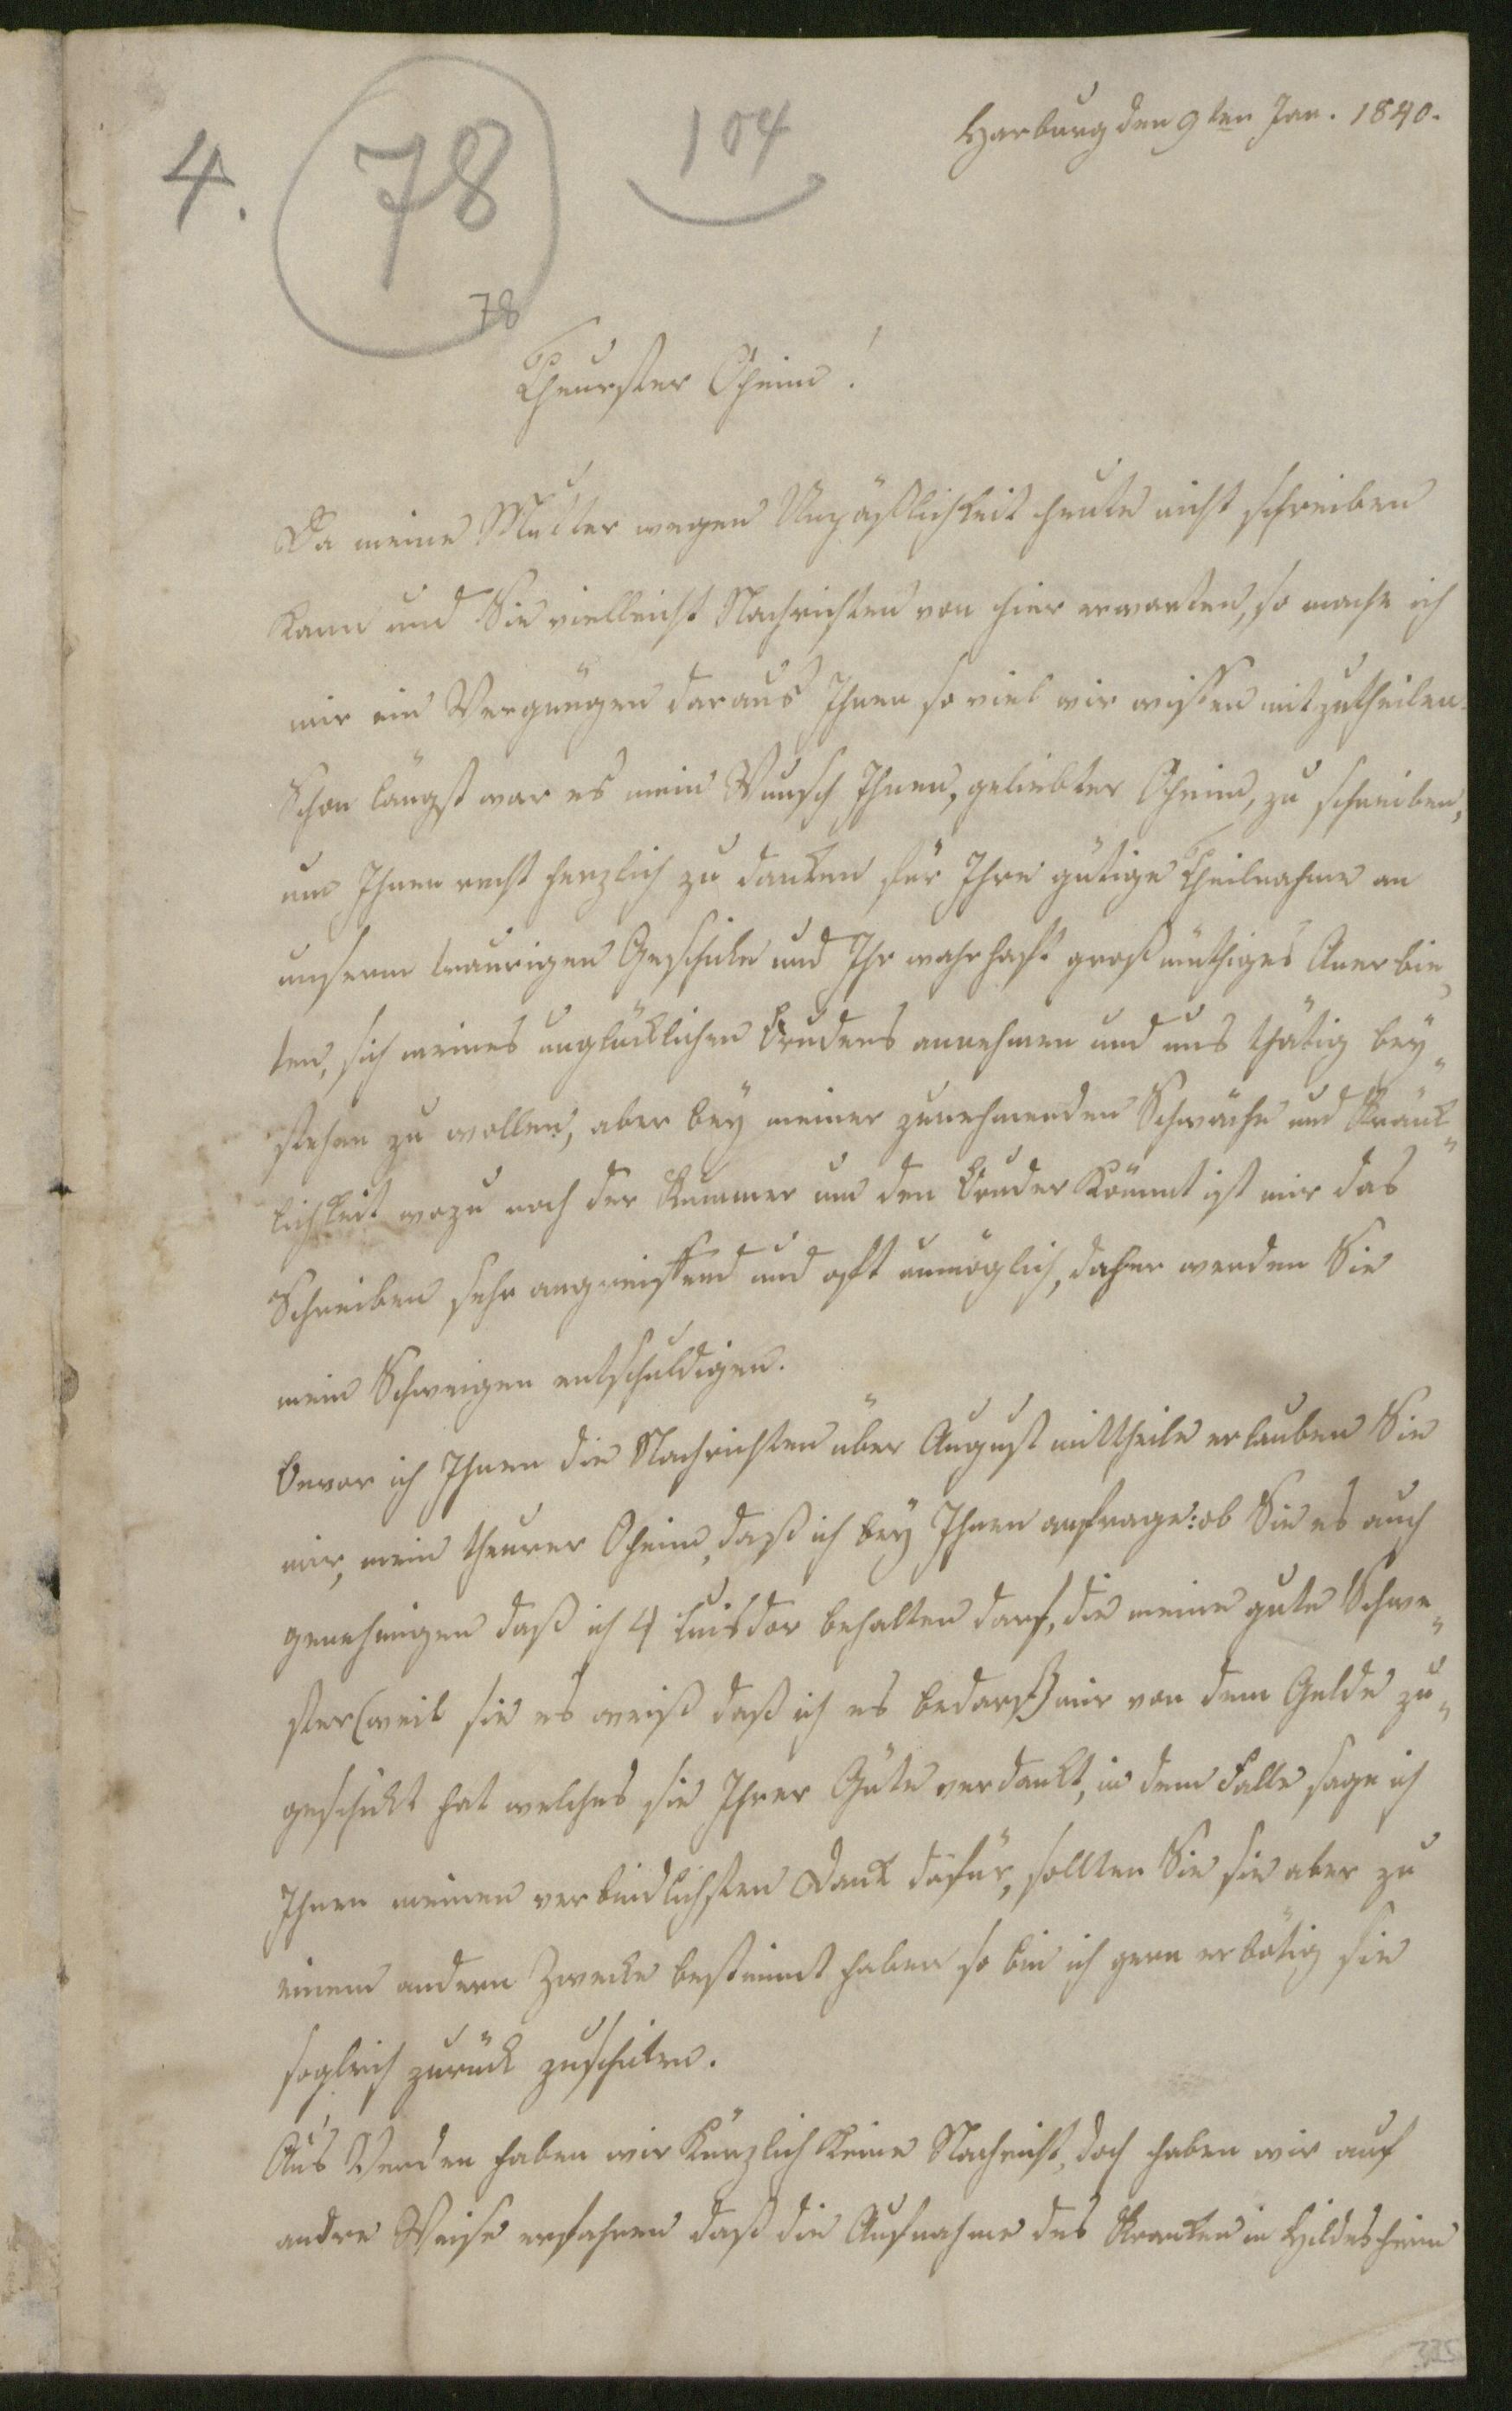 Harburg den 9ten Jan. 1840.
4.
78
104
78
Theurster Oheim!
Da meine Mutter wegen Unpäßlichkeit heute nicht schreiben
kann und Sie vielleicht Nachrichten von hier erwarten, so mache ich
mir ein Vergnügen daraus Ihnen so viel wir wissen mitzutheilen.
Schon längst war es mein Wunsch Ihnen, geliebter Oheim, zu schreiben,
um Ihnen recht herzlich zu danken für Ihre gütige Theilnahme an
unserm traurigen Geschicke und Ihr wahrhaft großmüthiges Anerbie„
ten, sich meines unglücklichen Bruders annehmen und uns thätig bey„
stehen zu wollen, aber bey meiner zunehmenden Schwäche und Kränk„
lichkeit wozu noch der Kummer um den Bruder kömmt ist mir das
Schreiben sehr angreiffend und oft unmöglich, daher werden Sie
mein Schweigen entschuldigen.
Bevor ich Ihnen die Nachrichten über August mittheile erlauben Sie
mir, mein theurer Oheim, daß ich bey Ihnen anfrage: ob Sie es auch
genehmigen daß ich 4 Luisdor behalten darf, die meine gute Schwe„
ster (weil sie es weiß daß ich es bedarf) mir von dem Gelde zu„
geschickt hat welches sie Ihrer Güte verdankt, in dem Falle sage ich
Ihnen meinen verbindlichsten Dank dafür, sollten Sie sie aber zu
einem andern Zwecke bestimmt haben so bin ich gern erbötig sie
sogleich zurück zuschicken.
Aus Verden haben wir kürzlich keine Nachricht, doch haben wir auf
andre Weise erfahren daß die Aufnahme des Kranken in Hildesheim
335